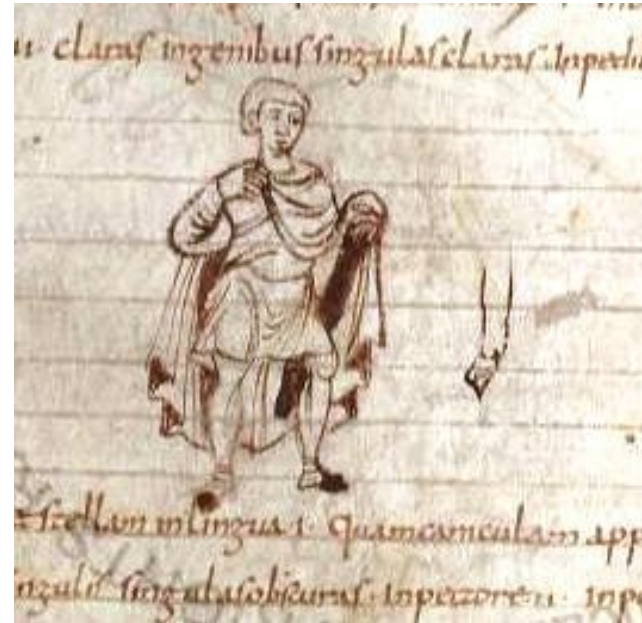 u. claras ingenibus singulas claras. Inpedi
stellam inlingua i. Quamcaniculam app
singulis singulas obscuras. Inpectore ii. Inpe